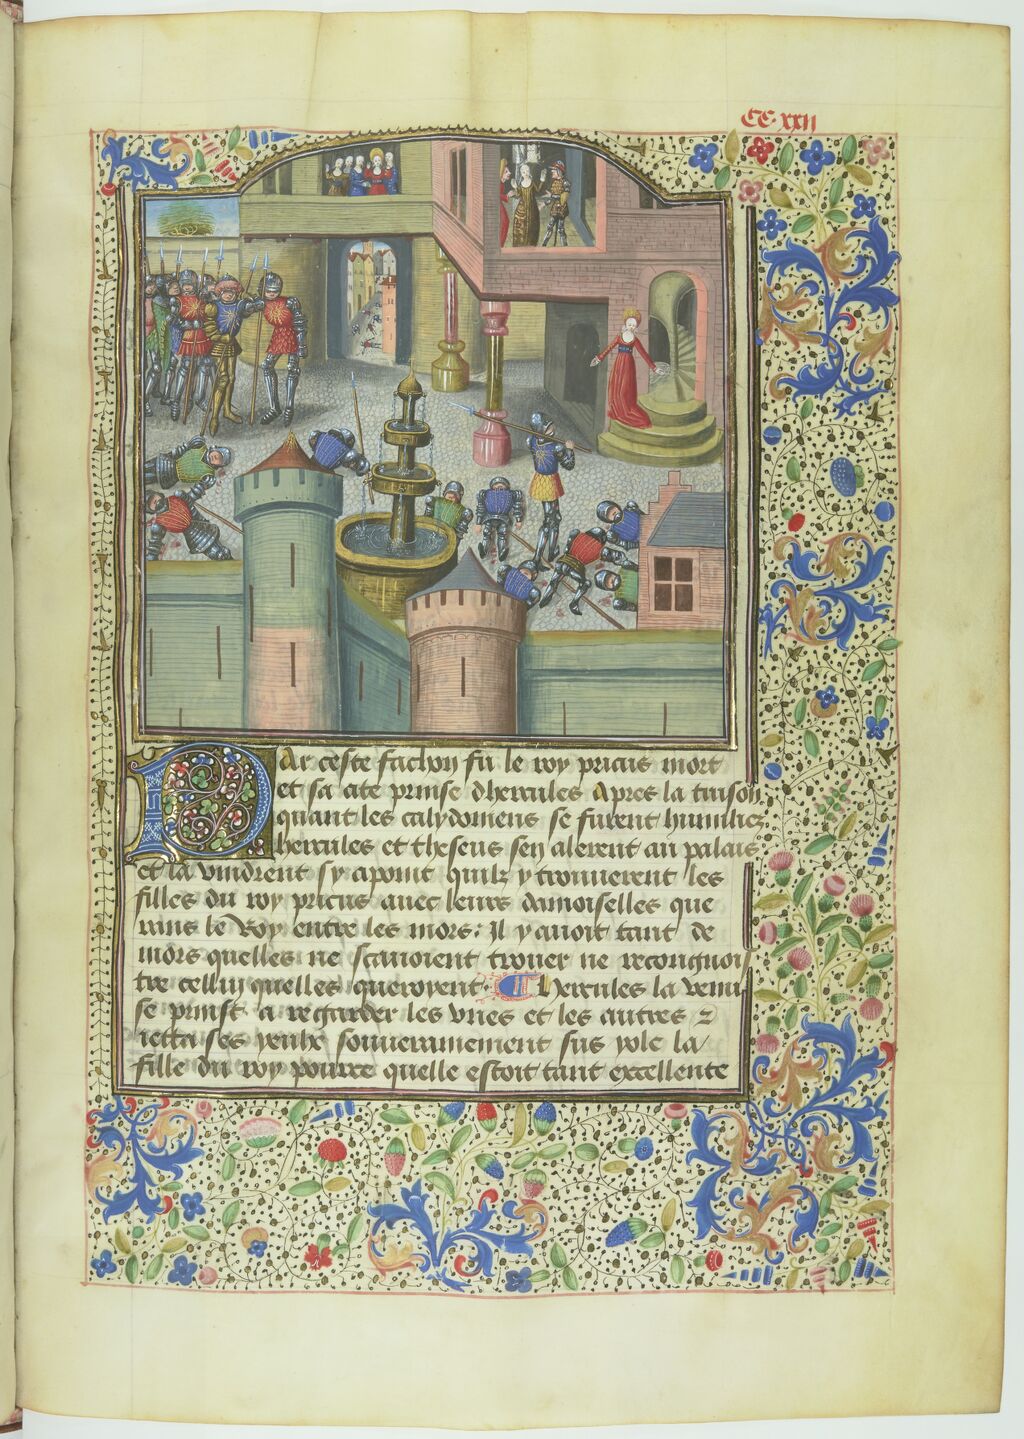 CC xxii
Par ceste fachon fu le roy pricus mort
et sa cite prinse dhercules Apres la traison
quant les calydoniens se furent humiliez
hercules et theseus sen alerent au palais
et la vindrent sy apoint quilz y trouuerent les
filles du roy pricus auec leurs damoiselles que
rans le Roy entre les mors: Il y auoit tant de
mors quelles ne scauoient trouer ne recongnoi
tre cellui quelles queroyent. Hercules la venu
se prinst a regarder les vnes et les autres z
ietta ses yeulx souuerainement sus yole la
fille du roy pource quelle estoit tant excellente